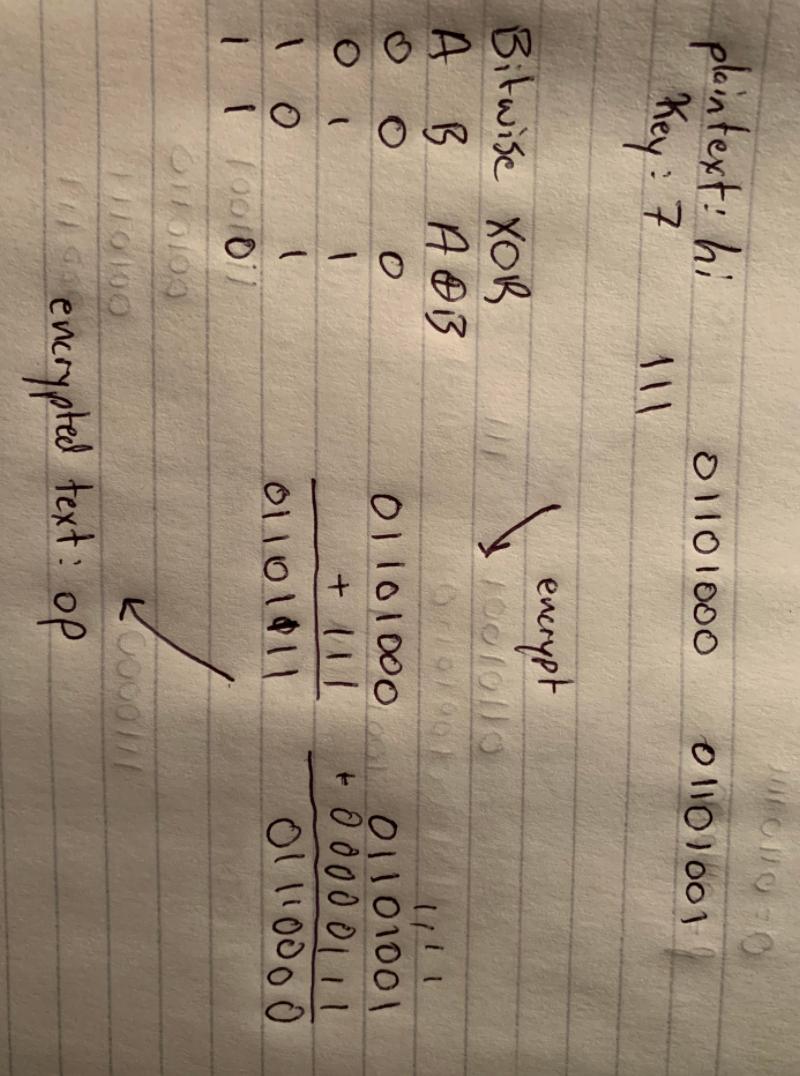 plaintext: hi 01101000 01101001
Key: 7 111
encrypt
Bitwise XOR
A B A⊕B
0 0 0
0 1 1
1 0 1
1 1 0
1111
01101000 01101001
+ 111 + 00000111
01101111 01110000
encrypted text: op